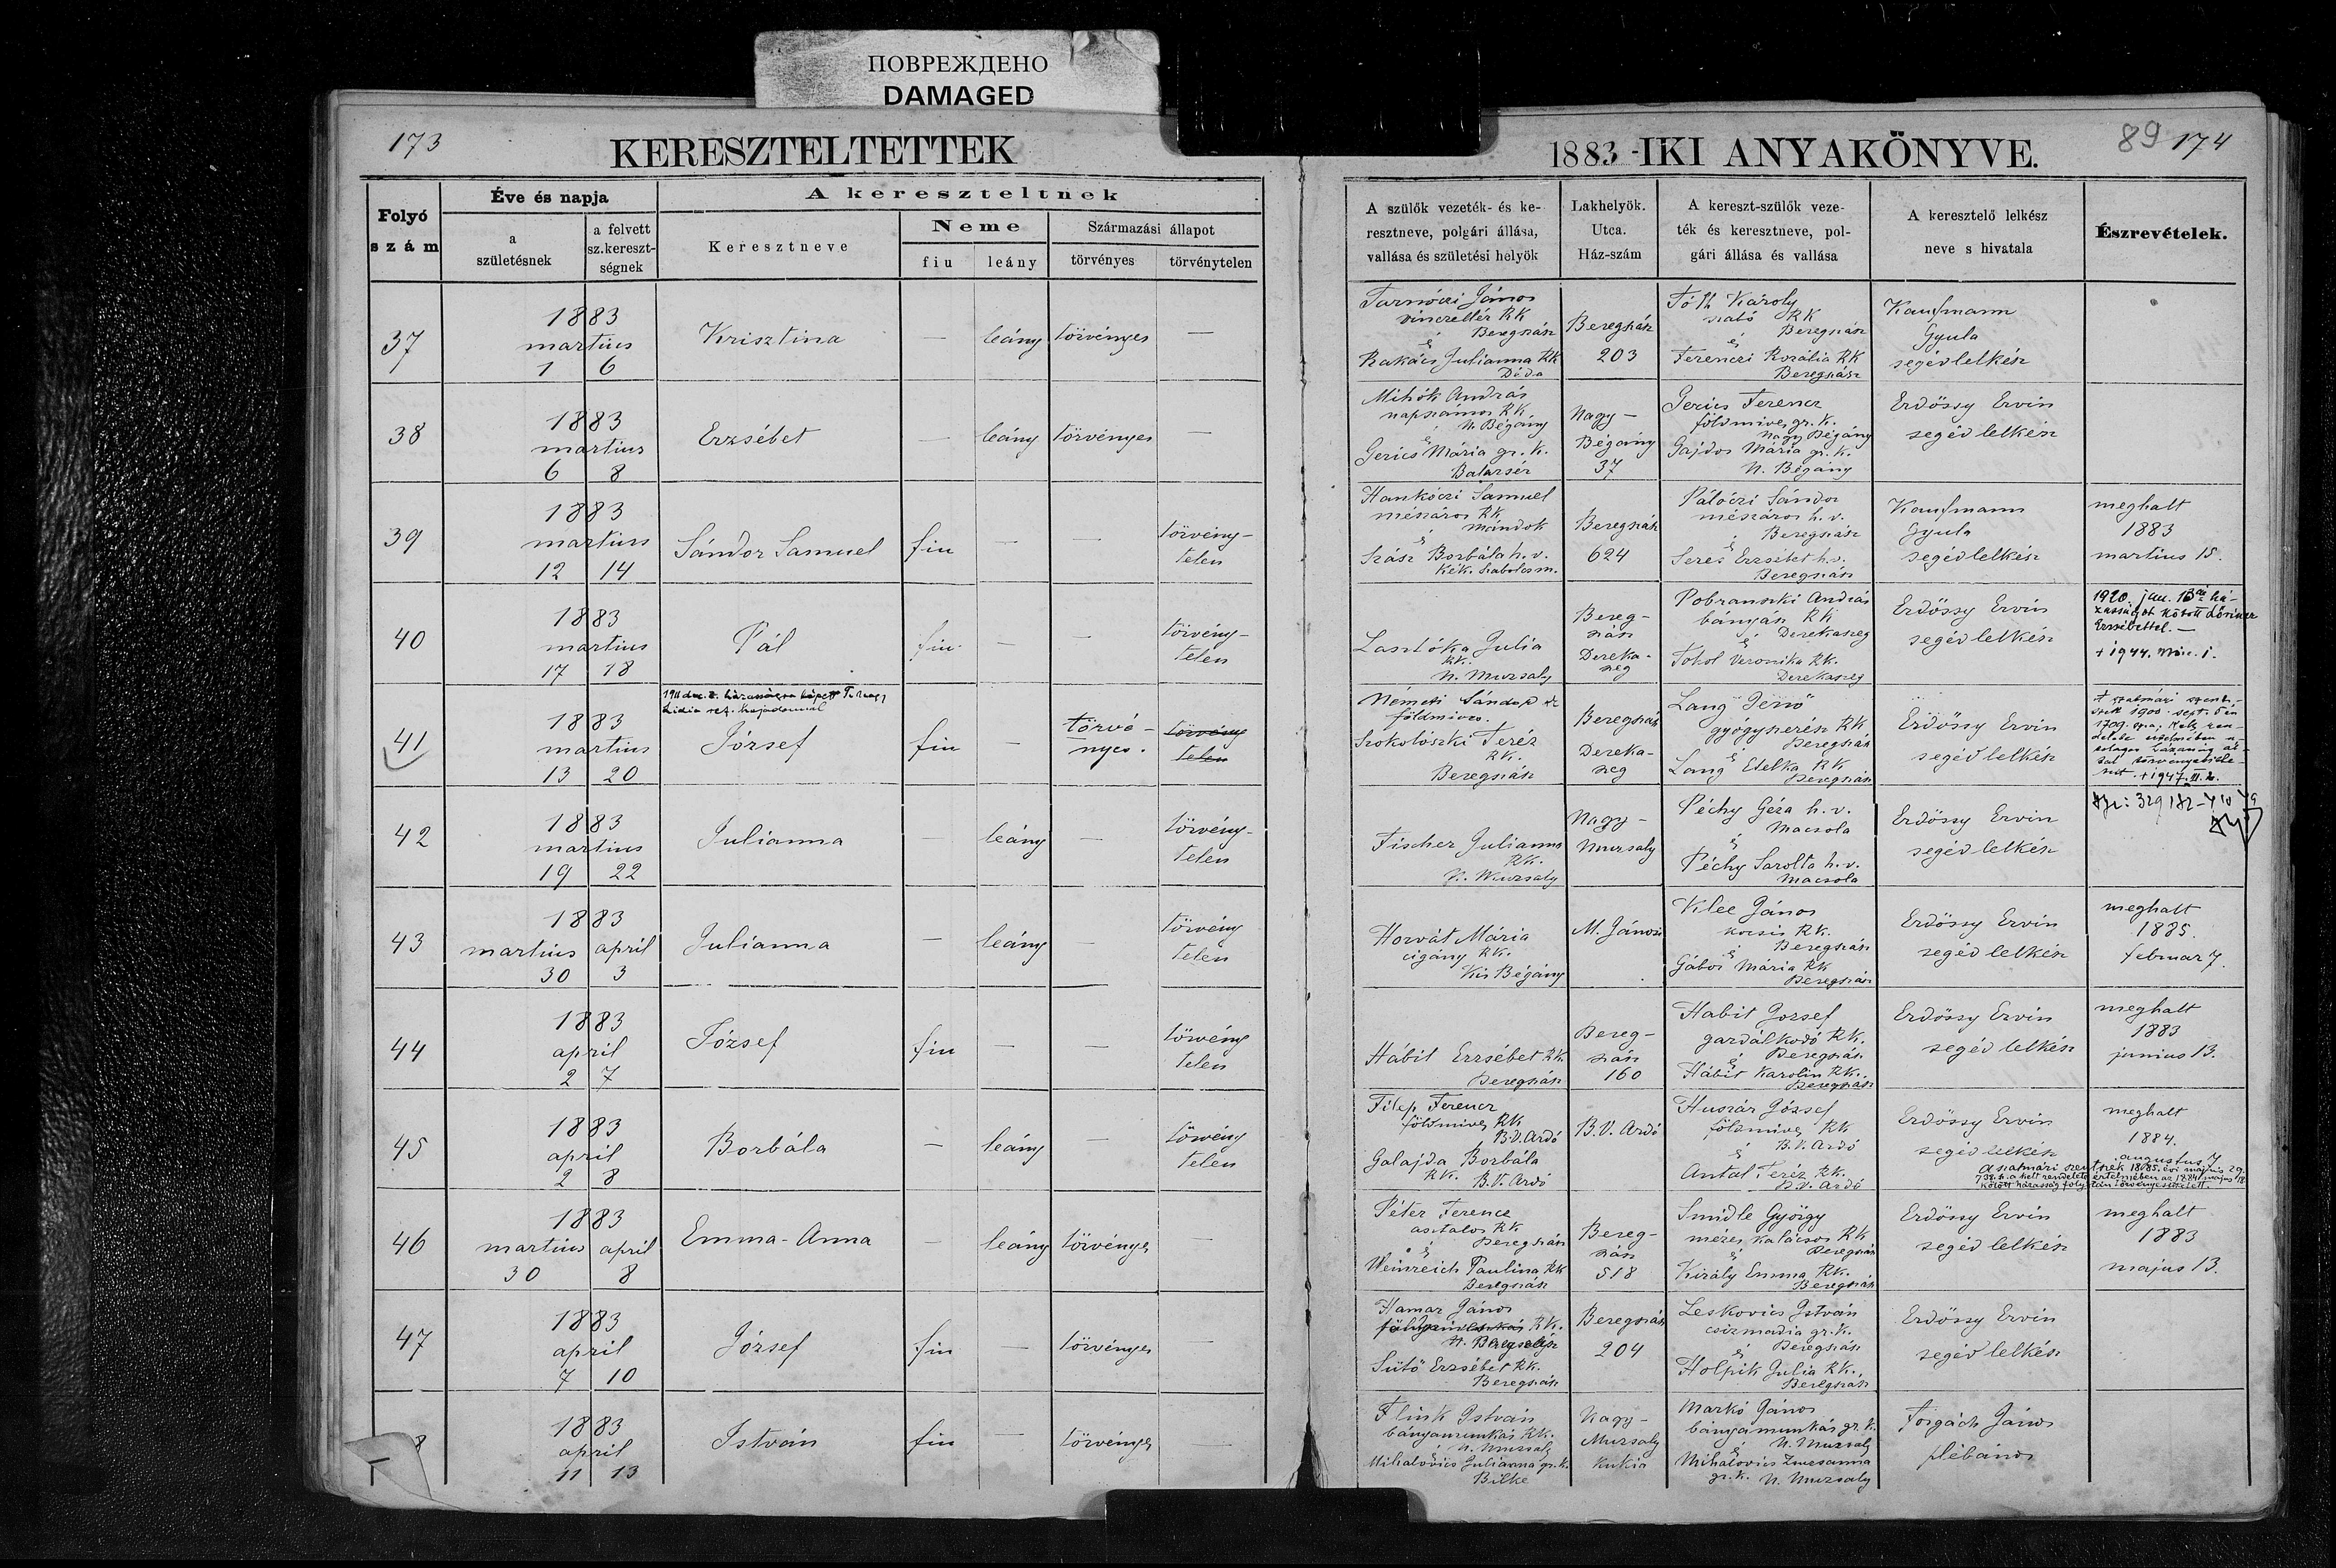 ПОВРЕЖДЕНО
DAMAGED
173
KERESZTELTETTEK
Folyó
szám
Éve és napja
a
születésnek
a felvett
sz.kereszt-
ségnek
A kereszteltnek
Keresztneve
Neme
fiu
leány
Származási állapot
törvényes
törvénytelen
37
1883
martius
1 6
Krisztina
—
leány
törvényes
—
38
1883
martius
6 8
Erzsébet
—
leány
törvényes
—
39
1883
martius
12 14
Sándor Samuel
fiu
—
—
törvény-
telen
40
1883
martius
17 18
Pál
fiu
—
—
törvény-
telen
41
1883
martius
13 20
1911 dec. házasságra lépett
Lidia ref. hajadonnal
József
fiu
—
törvé-
nyes.
törvény
telen
42
1883
martius
19 22
Julianna
—
leány
—
törvény-
telen
43
1883
martius april
30 3
Julianna
—
leány
—
törvény
telen
44
1883
april
2 7
József
fiu
—
—
törvény
telen
45
1883
april
2 8
Borbála
—
leány
—
törvény
telen
46
1883
martius april
30 8
Emma-Anna
—
leány
törvényes
—
47
1883
april
7 10
József
fiu
—
törvényes
—
8
1883
april
11 13
István
fiu
—
törvényes
—
1883-IKI ANYAKÖNYVE.
89 174
A szülők vezeték- és ke-
resztneve, polgári állása,
vallása és születési helyök
Lakhelyök.
Utca.
Ház-szám
A kereszt-szülők veze-
ték és keresztneve, pol-
gári állása és vallása
A keresztelő lelkész
neve s hivatala
Észrevételek.
Tarnóczi János
vinczellér RK
Beregszász
é
Rakács Julianna RK
Déda
Beregszász
203
Tóth Károly
szabó RK
Beregszász
é
Ferenczi Rozália RK
Beregszász
Kaufmann
Gyula
segédlelkész
Mihók András
napszámos RK.
N. Bégány
é
Gerics Mária gr. k.
Batarsér
Nagy-
Bégány
37
Gerics Ferencz
földmives gr. k.
Nagy Bégány
Gajdos Mária gr. k.
N. Bégány
Erdőssy Ervin
segéd lelkész
Hankóczi Samuel
mészáros RK
Mándok
é
Szász Borbála h. v.
Kék. Szabolcs m.
Beregszász
624
Pálóczi Sándor
mészáros h. v.
Beregszász
é
Seres Erzsébet h. v.
Beregszász
Kaufmann
Gyula
segédlelkész
meghalt
1883
martius 15.
Lasztóka Julia
RK.
N. Muzsaly
Bereg-
szász
Dereka-
szeg
Pobranszki András
bányász RK
é Derekaszeg
Tokol Veronika RK.
Derekaszeg
Erdőssy Ervin
segéd lelkész
1920. jan. 13án há-
zasságot kötött
Erzsébettel. —
+ 1944.
Németi Sándor
földmives.
Szokolószki Teréz
RK.
Beregszász
Beregszász
Dereka-
szeg
Lang Jenő
gyógyszerész RK
Beregszász
é
Lang Etelka RK
Beregszász
Erdőssy Ervin
segéd lelkész
A szatmári szent-
szék 1900. sept. 5 én
1709. sz. a. kelt ren-
delete értelmében
házasság ál-
tal törvényesítte-
tett. +1947. II. 2.
Fischer Julianna
RK.
N. Muzsaly
Nagy-
Muzsaly
Péchy Géza h. v.
Macsola
é
Péchy Sarolta h. v.
Macsola
Erdőssy Ervin
segéd lelkész
Horvát Mária
cigány RK.
Kis Bégány
M. János
Klee János
kocsis RK.
é Beregszász
Gábor Mária RK
Beregszász
Erdőssy Ervin
segéd lelkész
meghalt
1885.
februar 7.
Hábit Erzsébet RK
Beregszász
Bereg-
szász
160
Habit József
gazdálkodó RK.
é Beregszász
Hábit Karolin RK.
Beregszász
Erdőssy Ervin
segéd lelkész
meghalt
1883
junius 13.
Filep Ferencz
földmives RK
B.V. Ardó
Galajda Borbála
RK. B.V. Ardó
B.V. Ardó
Huszár József
földmives RK
é B.V. Ardó
Antal Teréz RK.
B.V. Ardó
Erdőssy Ervin
segéd lelkész
meghalt
1884.
augustus 7
A szatmári szentszék 1885. évi május 29.
738. sz. a. kelt rendelete értelmében az 1884 május 18
kötött házasság folytán törvényesíttetett.
Péter Ferencz
asztalos RK.
Beregszász
é
Weinreich Paulina RK
Beregszász
Bereg-
szász
518
Smidle György
mézes kalácsos RK
é Beregszász
Király Emma RK.
Beregszász
Erdőssy Ervin
segéd lelkész
meghalt
1883
majus 13.
Hamar János
RK.
Sütő Erzsébet RK.
Beregszász
Beregszász
204
Leskovics István
csizmadia gr. k.
é Beregszász
Holpik Julia RK.
Beregszász
Erdőssy Ervin
segéd lelkész
Flink István
bányamunkás RK.
N. Muzsaly
Mihalovics Julianna gr. k.
Bilke
Nagy-
Muzsaly
Kukia
Markó János
bányamunkás gr. k.
é N. Muzsaly
Mihalovics Zuzsanna
gr. k. N. Muzsaly
Forgách János
plébános